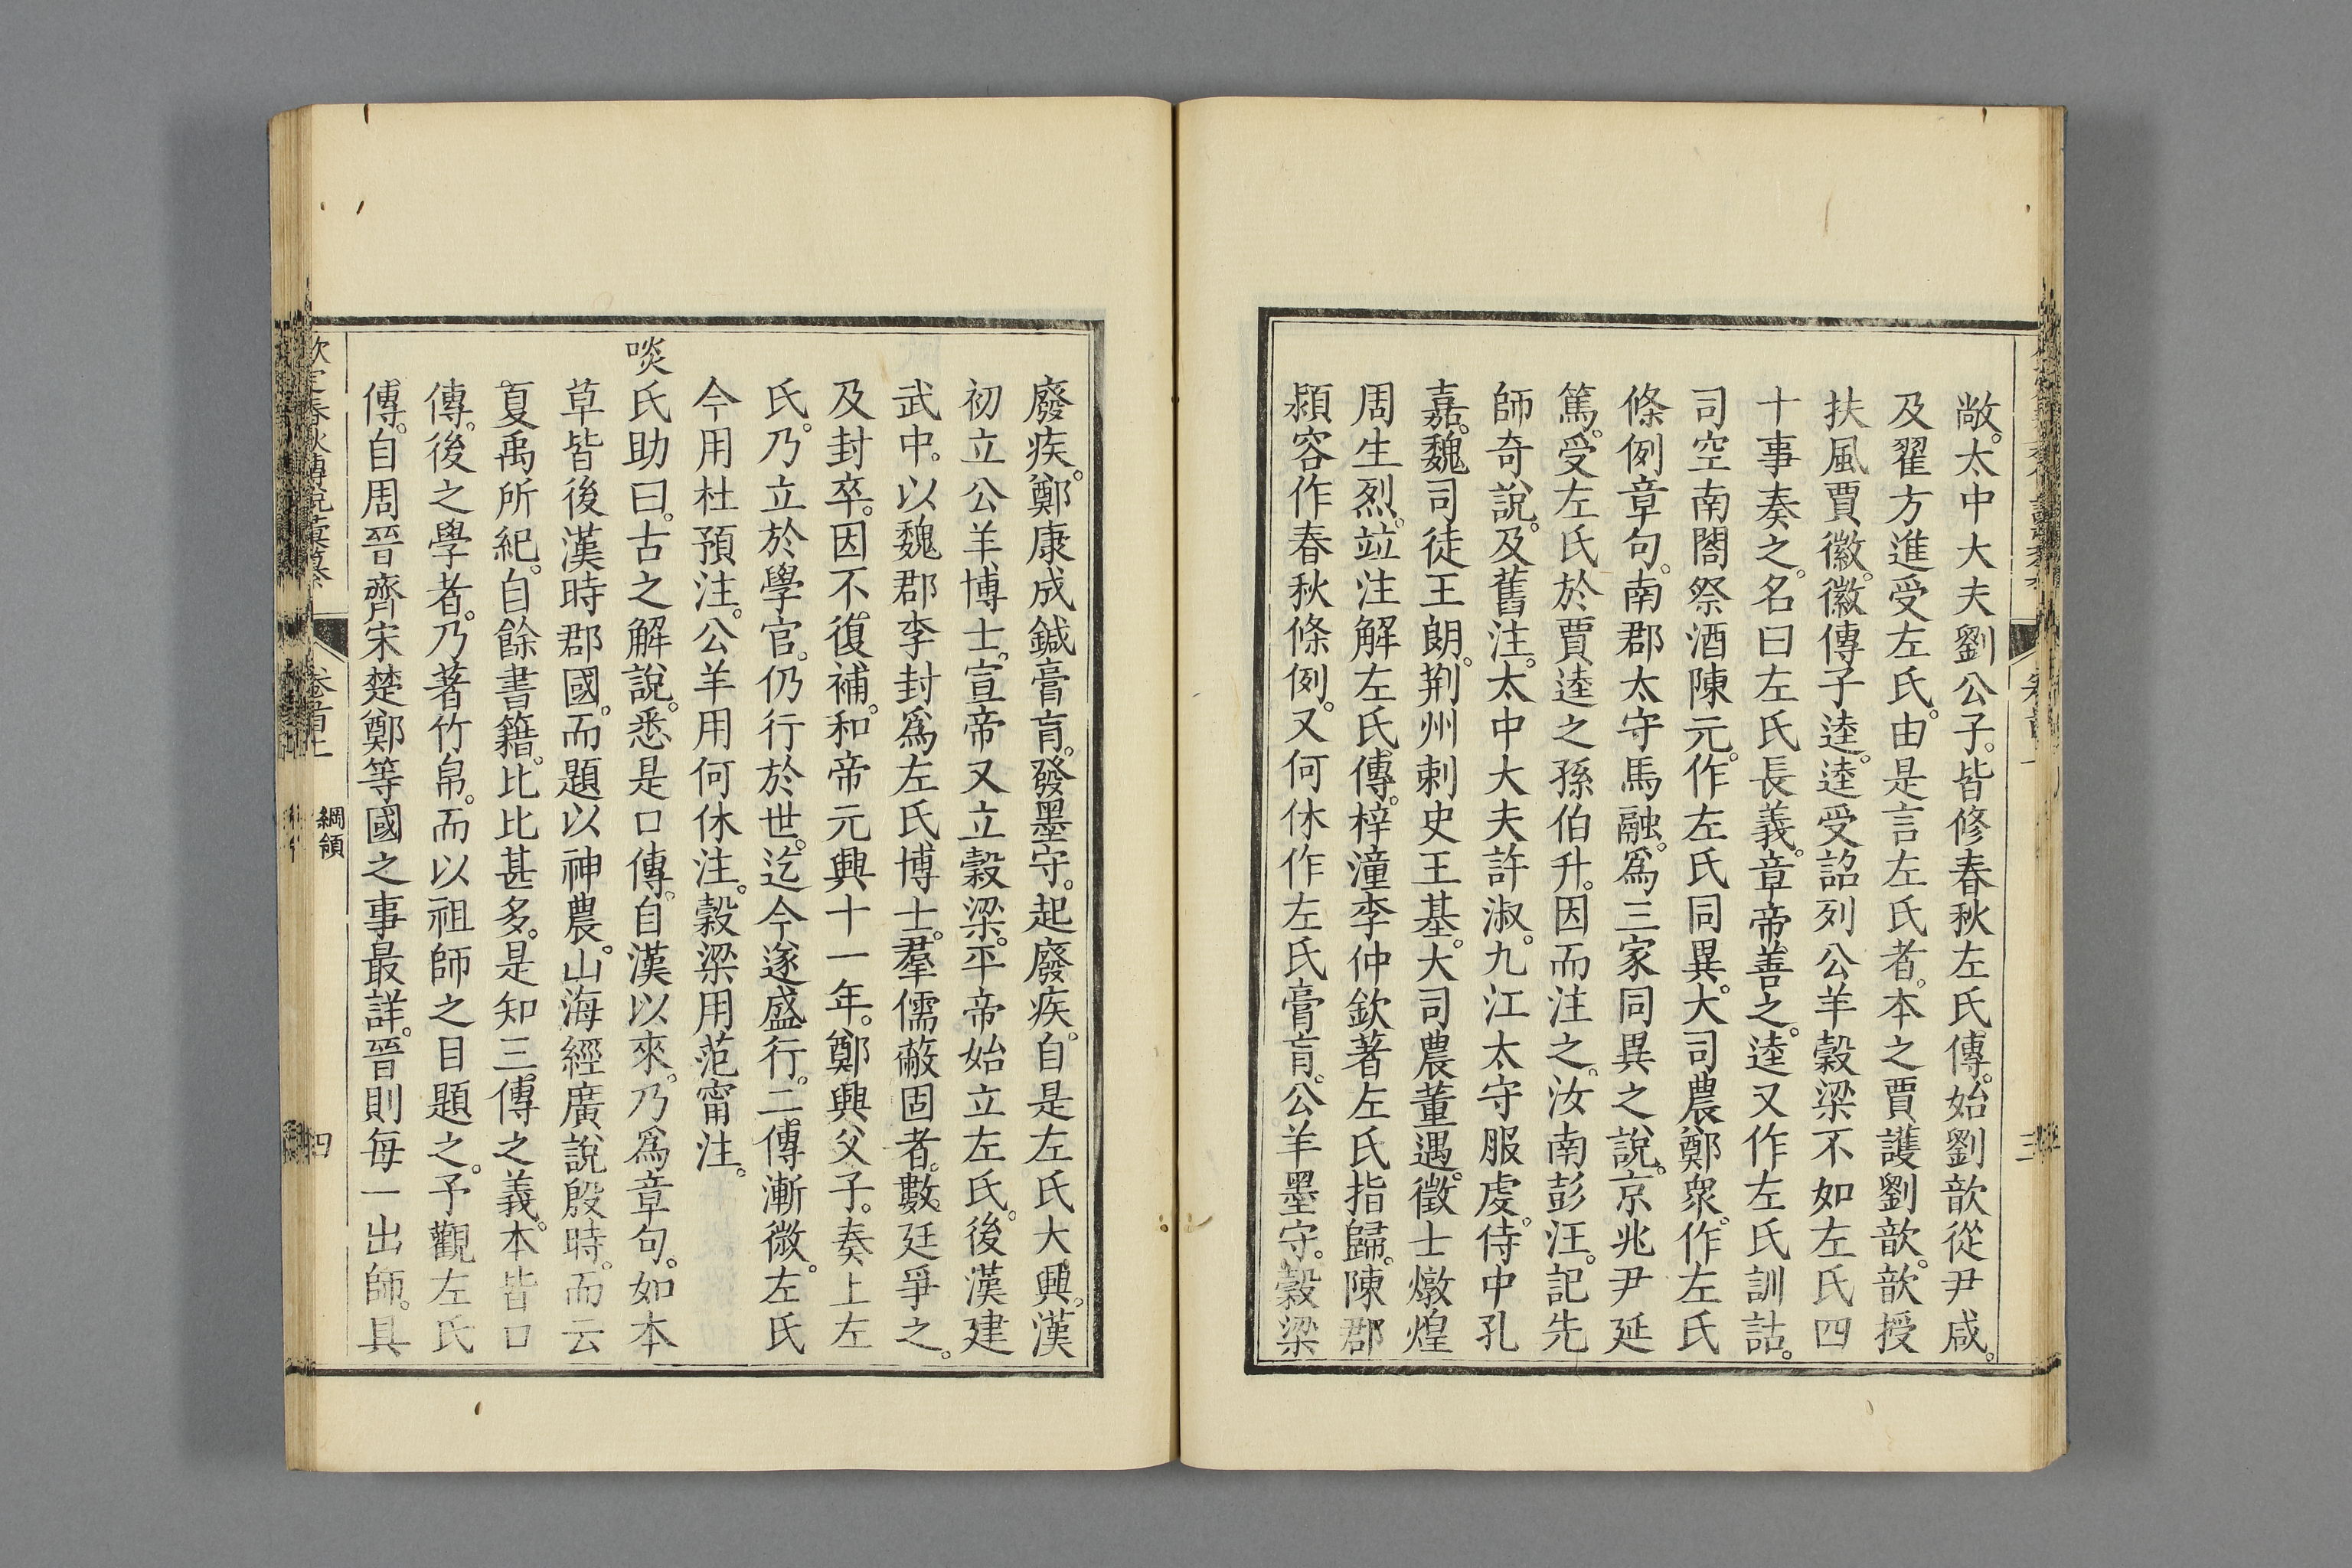 敞。太中大夫劉公子。皆修春秋左氏傳。始劉歆從尹咸。
及翟方進受左氏。由是言左氏者。本之賈護劉歆。歆授
扶風賈徽。徽傳子逵。逵受詔列公羊穀梁不如左氏四
十事奏之。名曰左氏長義。章帝善之。逵又作左氏訓詁。
司空南閤祭酒陳元。作左氏同異。大司農鄭衆。作左氏
條例章句。南郡太守馬融。爲三家同異之說。京兆尹延
篤。受左氏於賈逵之孫伯升。因而注之。汝南彭汪。記先
師奇說。及舊注。太中大夫許淑。九江太守服虔。侍中孔
嘉。魏司徒王朗。荆州刺史王基。大司農董遇。徵士燉煌
周生烈。竝注解左氏傳。梓潼李仲欽著左氏指歸。陳郡
潁容作春秋條例。又何休作左氏膏肓。公羊墨守。穀梁
廢疾。鄭康成鍼膏肓。發墨守。起廢疾。自是左氏大興。漢
初立公羊博士。宣帝又立穀梁。平帝始立左氏。後漢建
武中。以魏郡李封爲左氏博士。羣儒蔽固者。數廷爭之。
及封卒。因不復補。和帝元興十一年。鄭興父子。奏上左
氏。乃立於學官。仍行於世。迄今遂盛行。二傳漸微。左氏
今用杜預注。公羊用何休注。穀梁用范甯注。
啖氏助曰。古之解說。悉是口傳。自漢以來。乃爲章句。如本
草皆後漢時郡國。而題以神農。山海經廣說殷時。而云
夏禹所紀。自餘書籍。比比甚多。是知三傳之義。本皆口
傳。後之學者。乃著竹帛。而以祖師之目題之。予觀左氏
傳。自周晉齊宋楚鄭等國之事最詳。晉則每一出師。具
欽定春秋傳說彙纂
卷首上
綱領
四
三